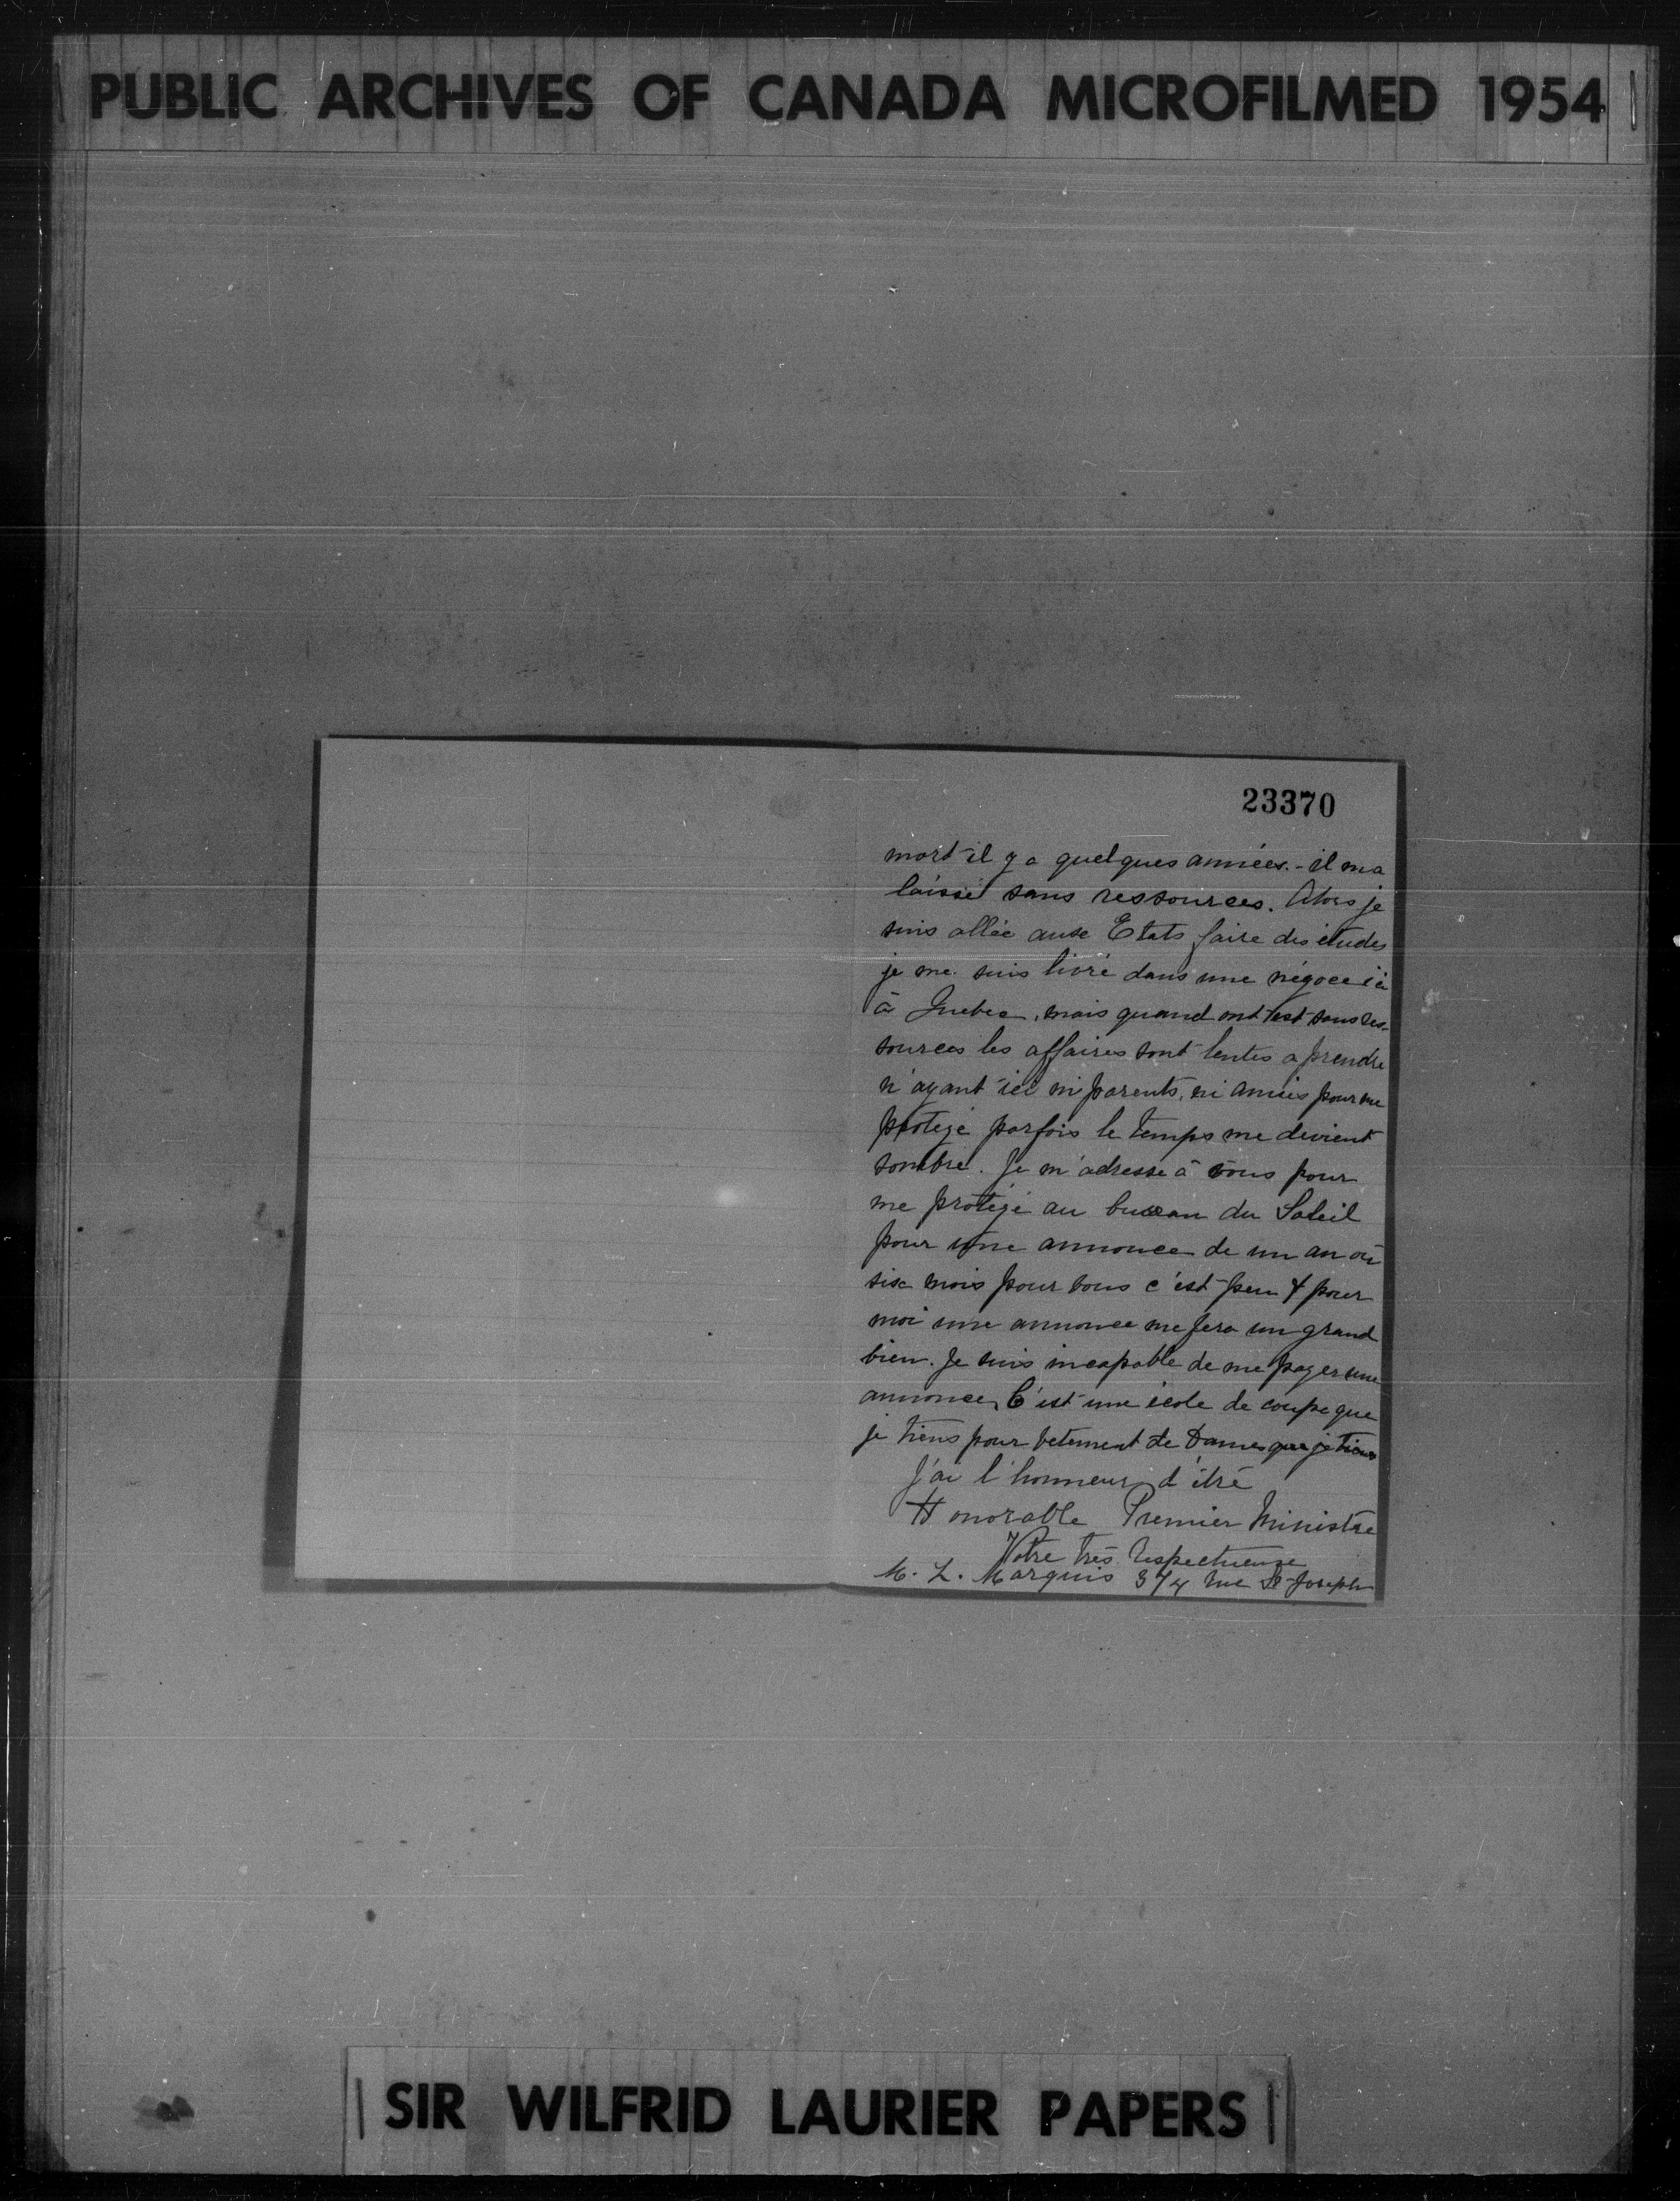 PUBLIC ARCHIVES OF CANADA MICROFILMED 1954
23370
mort il y a quelques années. - il ma
laissé sans ressources. Alors je
suis allée aux Etats faire des études
je me suis livré dans une négoce ici
à Quebec, mais quand ont est sans res-
sources les affaires sont lentes a prendre
n'ayant ici ni parents, ni amies pour me
protégé parfois le temps me devient
sombre. Je m'adresse à vous pour
me protégé au bureau du Soleil
pour une annonce de un an où
six mois pour vous c'est peu & pour
moi une annonce me fera un grand
bien. Je suis incapable de me payer une
annonce, C'est une école de coupe que
je tiens pour vetement de Dames que je tiens
J'ai l'honneur d'être
Honorable Premier Ministre
Votre très Respectueuse
M. L. Marquis 374 rue St-Joseph
SIR WILFRID LAURIER PAPERS